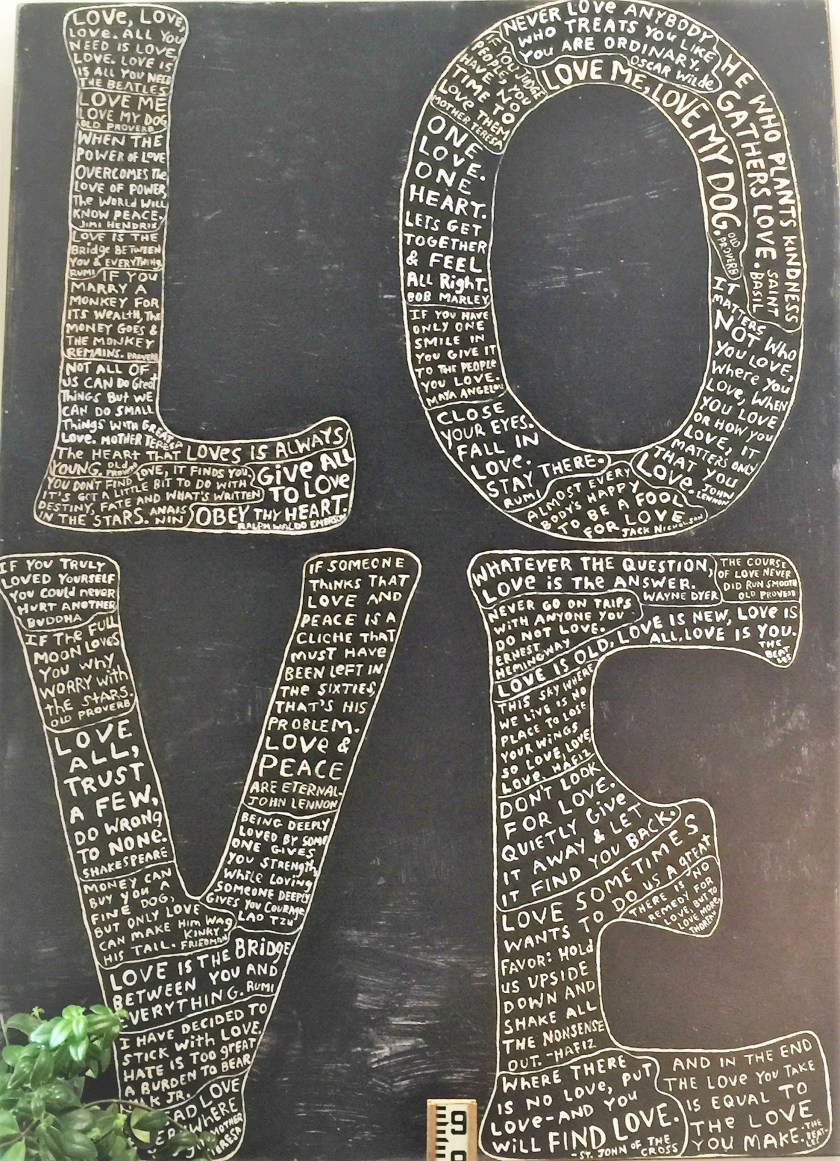 LOVE, LOVE,
LOVE. ALL YOU
NEED IS LOVE,
LOVE. LOVE IS
IS ALL YOU NEED
THE BEATLES
LOVE ME
LOVE MY DOG
OLD PROVERB
WHEN THE
POWER OF LOVE
OVERCOMES THE
LOVE OF POWER,
THE WORLD WILL
KNOW PEACE.
JIMI HENDRIX
LOVE IS THE
BRIDGE BETWEEN
YOU & EVERYTHING.
RUMI
IF YOU
MARRY A
MONKEY FOR
ITS WEALTH, THE
MONEY GOES &
THE MONKEY
REMAINS. PROVERB
NOT ALL OF
US CAN DO GREAT
THINGS BUT WE
CAN DO SMALL
THINGS WITH GREATER
LOVE. MOTHER TERESA
THE HEART THAT LOVES IS ALWAYS
YOUNG. OLD PROVERB
LOVE, IT FINDS YOU,
YOU DON'T FIND
IT'S GOT A LITTLE BIT TO DO WITH
DESTINY, FATE AND WHAT'S WRITTEN
IN THE STARS. ANAIS NIN
GIVE ALL
TO LOVE
OBEY THY HEART.
RALPH WALDO EMERSON
NEVER LOVE ANYBODY
WHO TREATS YOU LIKE
YOU ARE ORDINARY.
OSCAR WILDE
IF YOU JUDGE
PEOPLE, YOU
HAVE NO
TIME TO
LOVE THEM
MOTHER TERESA
LOVE ME, LOVE MY DOG.
OLD PROVERB
HE WHO PLANTS KINDNESS
GATHERS LOVE.
SAINT BASIL
ONE
LOVE.
ONE
HEART.
LETS GET
TOGETHER
& FEEL
ALL RIGHT.
BOB MARLEY
IF YOU HAVE
ONLY ONE
SMILE IN
YOU GIVE IT
TO THE PEOPLE
YOU LOVE.
MAYA ANGELOU
CLOSE
YOUR EYES.
FALL IN
LOVE.
STAY THERE.
RUMI
ALMOST EVERY
BODY'S HAPPY
TO BE A FOOL
FOR LOVE.
JACK NICHOLSON
IT
MATTERS
NOT WHO
YOU LOVE,
WHERE YOU
LOVE, WHEN
YOU LOVE
OR HOW YOU
LOVE, IT
MATTERS ONLY
THAT YOU
LOVE. JOHN
LENNON
IF YOU TRULY
LOVED YOURSELF
YOU COULD NEVER
HURT ANOTHER
BUDDHA
IF THE FULL
MOON LOVES
YOU WHY
WORRY WITH
THE STARS.
OLD PROVERB
LOVE
ALL,
TRUST
A FEW,
DO WRONG
TO NONE.
SHAKESPEARE
MONEY CAN
BUY YOU A
FINE DOG,
BUT ONLY LOVE
CAN MAKE HIM WAG
HIS TAIL. KINKY FRIEDMAN
IF SOMEONE
THINKS THAT
LOVE AND
PEACE IS A
CLICHE THAT
MUST HAVE
BEEN LEFT IN
THE SIXTIES,
THAT'S HIS
PROBLEM.
LOVE &
PEACE
ARE ETERNAL-
JOHN LENNON
BEING DEEPLY
LOVED BY SOME
ONE GIVES
YOU STRENGTH
WHILE LOVING
SOMEONE DEEPLY
GIVES YOU COURAGE
LAO TZU
LOVE IS THE BRIDGE
BETWEEN YOU AND
EVERYTHING. RUMI
I HAVE DECIDED TO
STICK WITH LOVE.
HATE IS TOO GREAT
A BURDEN TO BEAR
MLK JR.
LOVE
MOTHER
TERESA
WHATEVER THE QUESTION,
LOVE IS THE ANSWER.
WAYNE DYER
THE COURSE
OF LOVE NEVER
DID RUN SMOOTH
OLD PROVERB
NEVER GO ON TRIPS
WITH ANYONE YOU
DO NOT LOVE.
ERNEST
HEMINGWAY
LOVE IS OLD, LOVE IS NEW, LOVE IS
ALL, LOVE IS YOU.
THE
BEAT
LES
THIS SKY WHERE
WE LIVE IS NO
PLACE TO LOSE
YOUR WINGS
SO LOVE, LOVE,
LOVE. HAFIZ
DON'T LOOK
FOR LOVE.
QUIETLY GIVE
IT AWAY & LET
IT FIND YOU BACK.
LOVE SOMETIMES
WANTS TO DO US A GREAT
FAVOR: HOLD
US UPSIDE
DOWN AND
SHAKE ALL
THE NONSENSE
OUT. -HAFIZ
THERE IS NO
REMEDY FOR
LOVE, BUT TO
LOVE MORE.
THOREAU
WHERE THERE
IS NO LOVE, PUT
LOVE-AND YOU
WILL FIND LOVE.
-ST. JOHN OF THE
CROSS
AND IN THE END
THE LOVE YOU TAKE
IS EQUAL TO
THE LOVE
YOU MAKE. -THE
BEAT-
LES